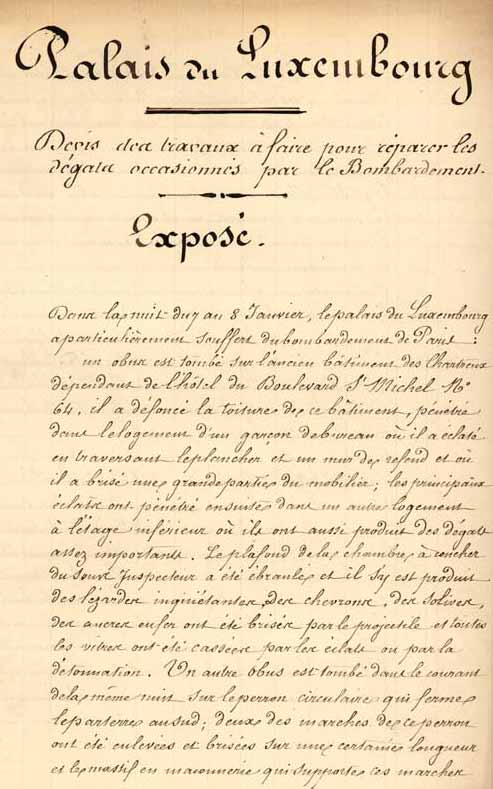 Palais du Luxembourg
Devis des travaux à faire pour réparer les
dégats occasionnés par le Bombardement.
Exposé.
Dans la nuit du 7 au 8 Janvier, le palais du Luxembourg
a particulièrement souffert du bombardement de Paris :
un obus est tombé sur l'ancien bâtiment des Chartreux
dépendant de l'hôtel du Boulevard St Michel No
64, il a défoncé la toiture de ce bâtiment, pénétré
dans le logement d'un garçon de bureau où il a éclaté
en traversant le plancher et un mur de refend et où
il a brisé une grande partie du mobilier; les principaux
éclats ont pénétré ensuite dans un autre logement
à l'étage inférieur où ils ont aussi produit des dégats
assez importants. Le plafond de la chambre à coucher
du sous Inspecteur a été ébranlé et il s'y est produit
des lézardes inquiétantes, des chevrons, des solives,
des ancres en fer ont été brisés par le projectile et toutes
les vitres ont été cassées par les éclats ou par la
détonnation. Un autre obus est tombé dans le courant
de la même nuit sur le perron circulaire qui ferme
le parterre au sud; deux des marches de ce perron
ont été enlevées et brisées sur une certaine longueur
et le massif en maçonnerie qui supporte ces marches